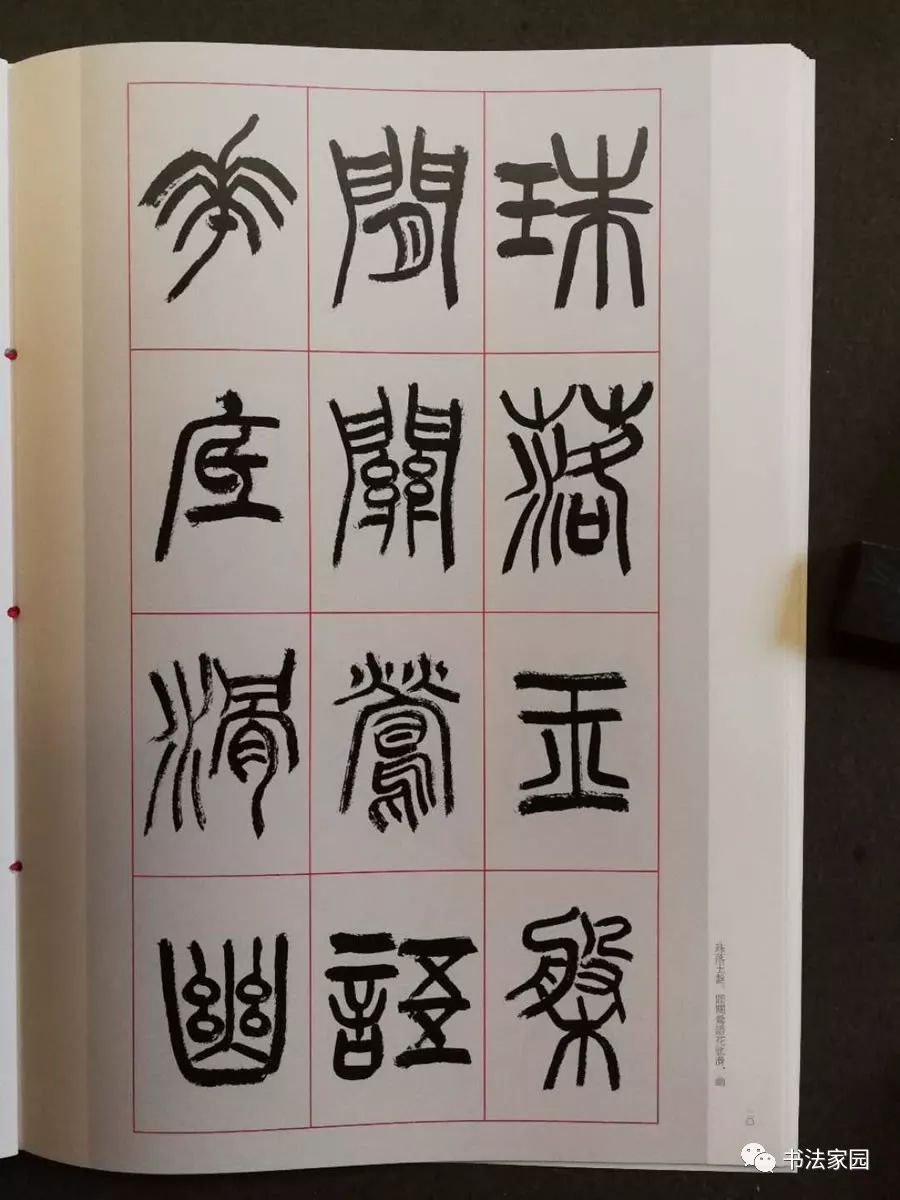 珠落玉槃
間關鶯語
花底滑幽
珠落玉盤。間關鶯語花底滑，幽
书法家园